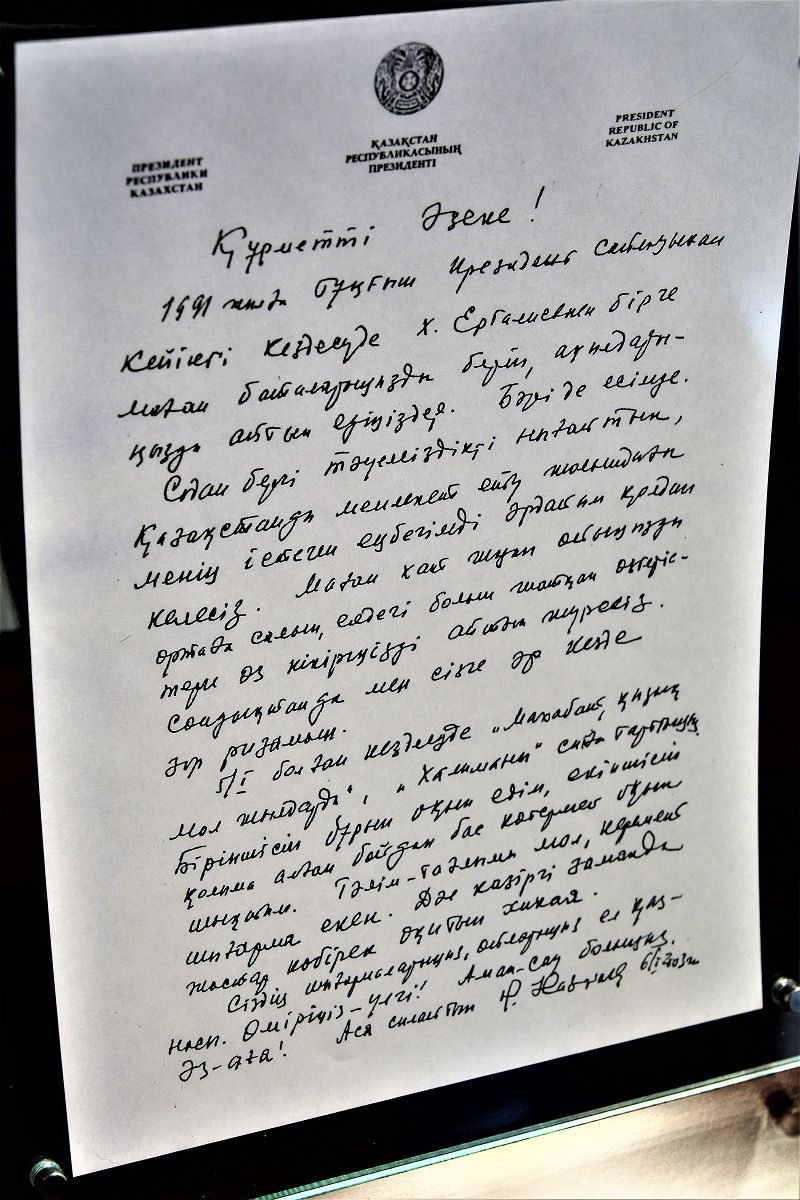 ПРЕЗИДЕНТ
РЕСПУБЛИКИ
КАЗАХСТАН
ҚАЗАҚСТАН
РЕСПУБЛИКАСЫНЫҢ
ПРЕЗИДЕНТІ
PRESIDENT
REPUBLIC OF
KAZAKHSTAN
Құрметті Әзеке!
1991 жылда Тұңғыш Президент сайланғаннан
кейінгі кездесуде Х. Ерғалиевпен бірге
маған баталарыңызды беріп, ақылдары-
ңызды айтып едіңіздер. Бәрі де есімде.
Содан бері тәуелсіздікті нығайтып,
Қазақстанды мемлекет ету жолындағы
менің істеген еңбегімді әрдайым қолдап
келесіз. Маған хат жазып ойыңызды
ортаға салып, елдегі болып жатқан өзгеріс-
терге өз пікіріңізді айтып жүресіз.
Сондықтан да мен сізге әр кезде
зор ризамын.
5/I болған кездесуде „Махаббат, қызық
мол жылдарды", „Халиманы" сыйға тарттыңыз.
Біріншісін бұрын оқып едім, екіншісін
қолыма алған бойдан бас көтермей оқып
шықтым. Тәлім-тағлымы мол, керемет
шығарма екен. Дәл қазіргі заманда
жастар көбірек оқитын хикая.
Сіздің шығармаларыңыз, ойларыңыз ел қаз-
насы. Өміріңіз-үлгі! Аман-сау болыңыз,
Әз-аға! Аса сыйлайтын Н. Назарбаев 6/I